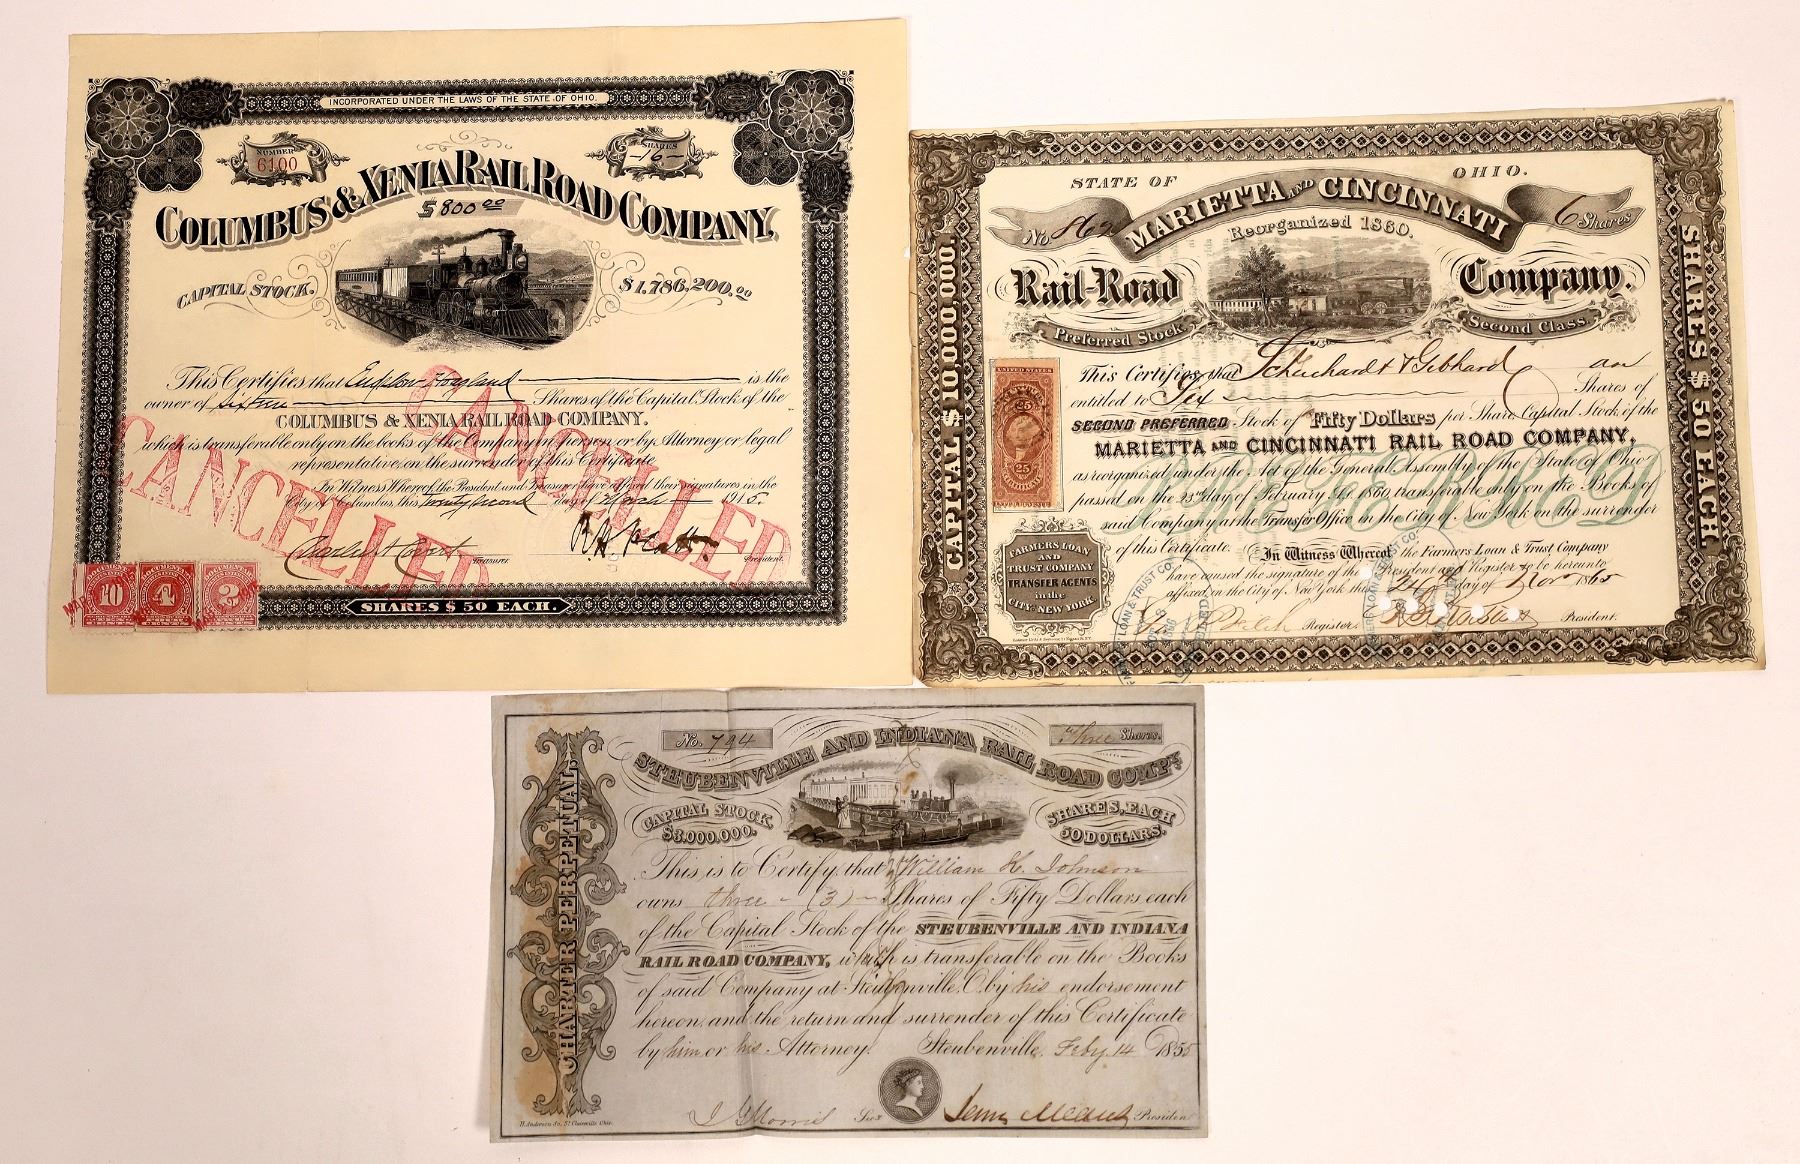 INCORPORATED UNDER THE LAWS OF THE STATE OF OHIO.
NUMBER
6100
SHARES
-16-
COLUMBUS & XENIA RAIL ROAD COMPANY,
$800 00
CAPITAL STOCK.
$1,786,200.00
This Certifies that Hoagland is the
owner of Sixteen Shares of the Capital Stock of the
COLUMBUS & XENIA RAIL ROAD COMPANY.
which is transferable only on the books of the Company in person or by Attorney or legal
representative, on the surrender of this Certificate
In Witness Whereof, the President and Treasurer have affixed their signatures in the
City of Columbus, this Twenty second day of March 1915.
Treasurer.
President.
CANCELLED
CANCELLED
DOCUMENTARY
10
DOCUMENTARY
4
DOCUMENTARY
2
SHARES $50 EACH.
STATE OF OHIO.
No. 862
6 Shares
MARIETTA AND CINCINNATI
Reorganized 1860.
Rail-Road Company.
Preferred Stock
Second Class.
CAPITAL $10,000,000.
SHARES $50 EACH.
UNITED STATES
25
25
This Certifies that Schuchardt & Gebhard are
entitled to Six Shares of
SECOND PREFERRED Stock of Fifty Dollars per Share Capital Stock of the
MARIETTA AND CINCINNATI RAIL ROAD COMPANY,
as reorganised under the Act of the General Assembly of the State of Ohio
passed on the 23rd day of February A.D. 1860, transferable only on the Books of
said Company at the Transfer Office in the City of New York on the surrender
of this Certificate.
In Witness Whereof the Farmers Loan & Trust Company
have caused the signature of the President and Register to be hereunto
affixed in the City of New York this 24th day of Nov 1865
PREFERRED
FARMERS LOAN
AND
TRUST COMPANY
TRANSFER AGENTS
in the
CITY NEW YORK.
Register.
President.
No. 794
Three Shares.
STEUBENVILLE AND INDIANA RAIL ROAD COMPY
CAPITAL STOCK
$3.000.000.
SHARES, EACH
50 DOLLARS.
CHARTER PERPETUAL.
This is to Certify, that William H. Johnson
owns three - (3) - Shares of Fifty Dollars each
of the Capital Stock of the STEUBENVILLE AND INDIANA
RAIL ROAD COMPANY, which is transferable on the Books
of said Company at Steubenville, O. by his endorsement
hereon, and the return and surrender of this Certificate
by him or his Attorney. Steubenville, Feby. 14 1855
Secy
President